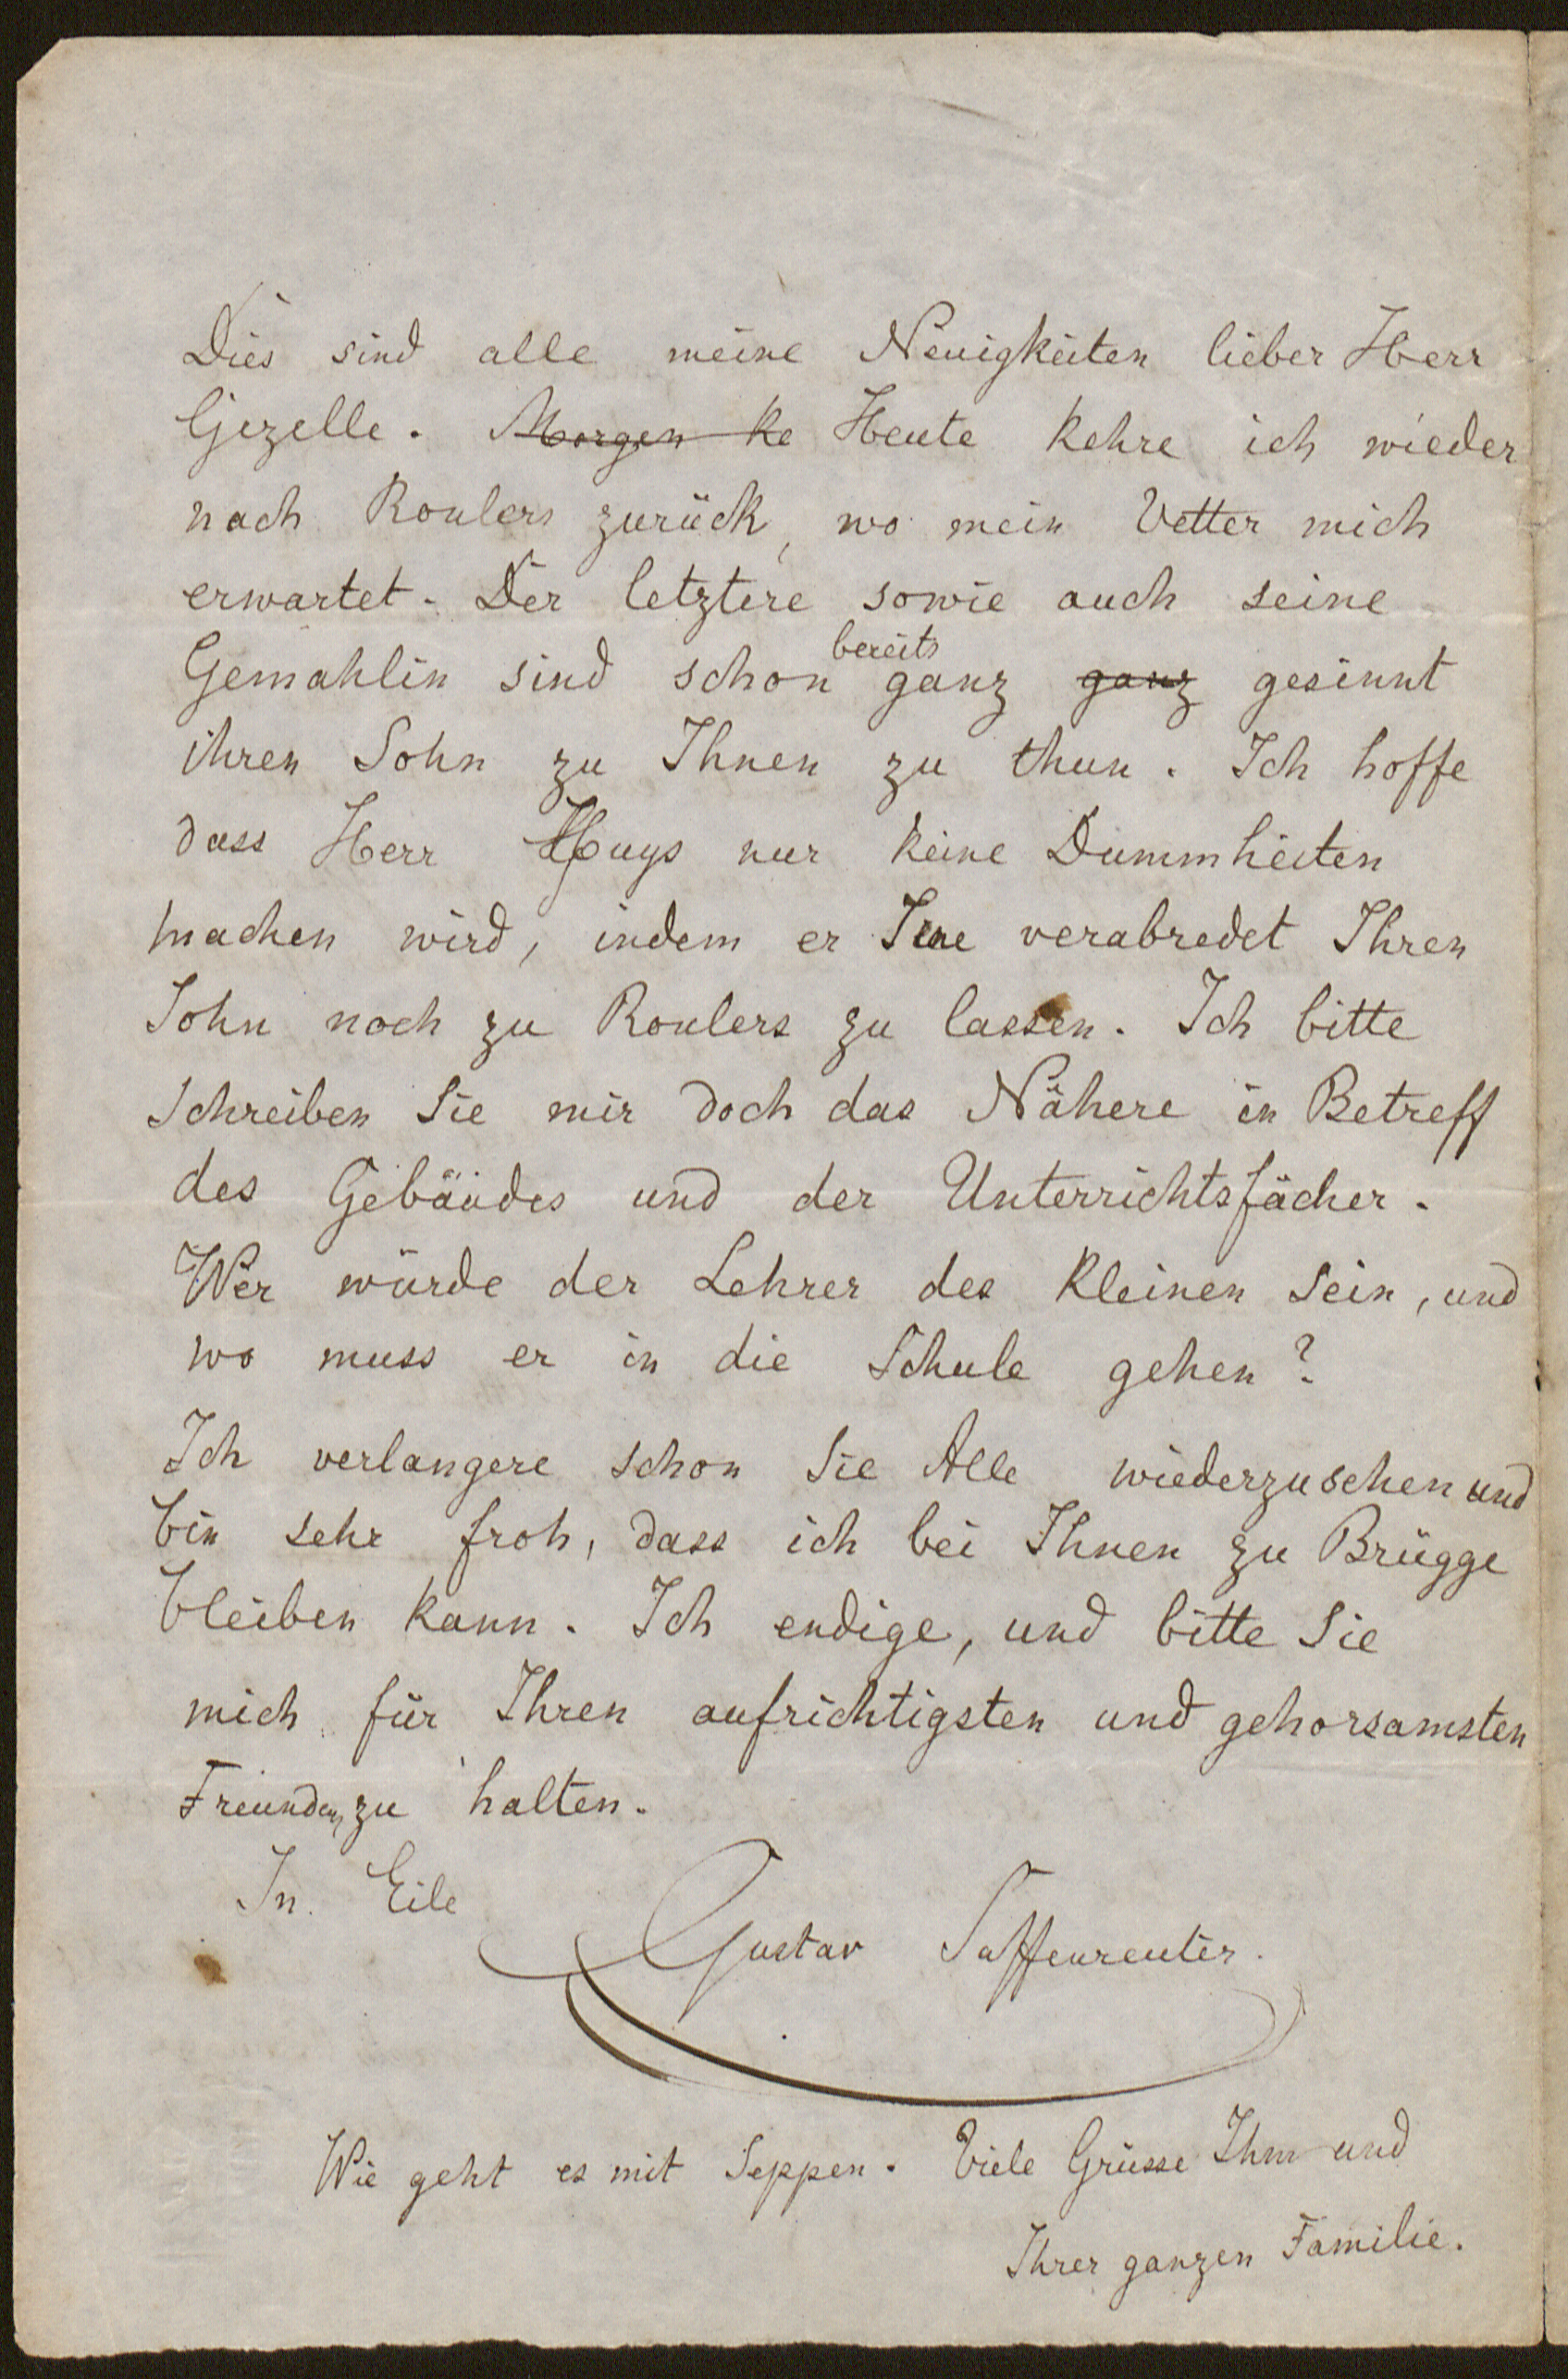 Dies sind alle meine Neuigkeiten lieber Herr
Gezelle. Morgen ke Heute kehre ich wieder
nach Roulers zurück, wo mein Vetter mich
erwartet. Der letztere sowie auch seine
bereits
Gemahlin sind schon ganz ganz gesinnt
ihren Sohn zu Ihnen zu thun. Ich hoffe
dass Herr Huys nur keine Dummheiten
machen wird, indem er verabredet Ihren
Sohn noch zu Roulers zu lassen. Ich bitte
schreiben Sie mir doch das Nähere in Betreff
des Gebäudes und der Unterrichtsfächer.
Wer würde der Lehrer des Kleinen sein, und
wo muss er in die Schule gehen?
Ich verlangere schon Sie Alle wiederzusehen und
bin sehr froh, dass ich bei Ihnen zu Brügge
bleiben kann. Ich endige, und bitte Sie
mich für Ihren aufrichtigsten und gehorsamsten
Freunden zu halten.
In Eile
Gustav Saffenreuter.
Wie geht es mit Seppen. Viele Grüsse Ihm und
Ihrer ganzen Familie.